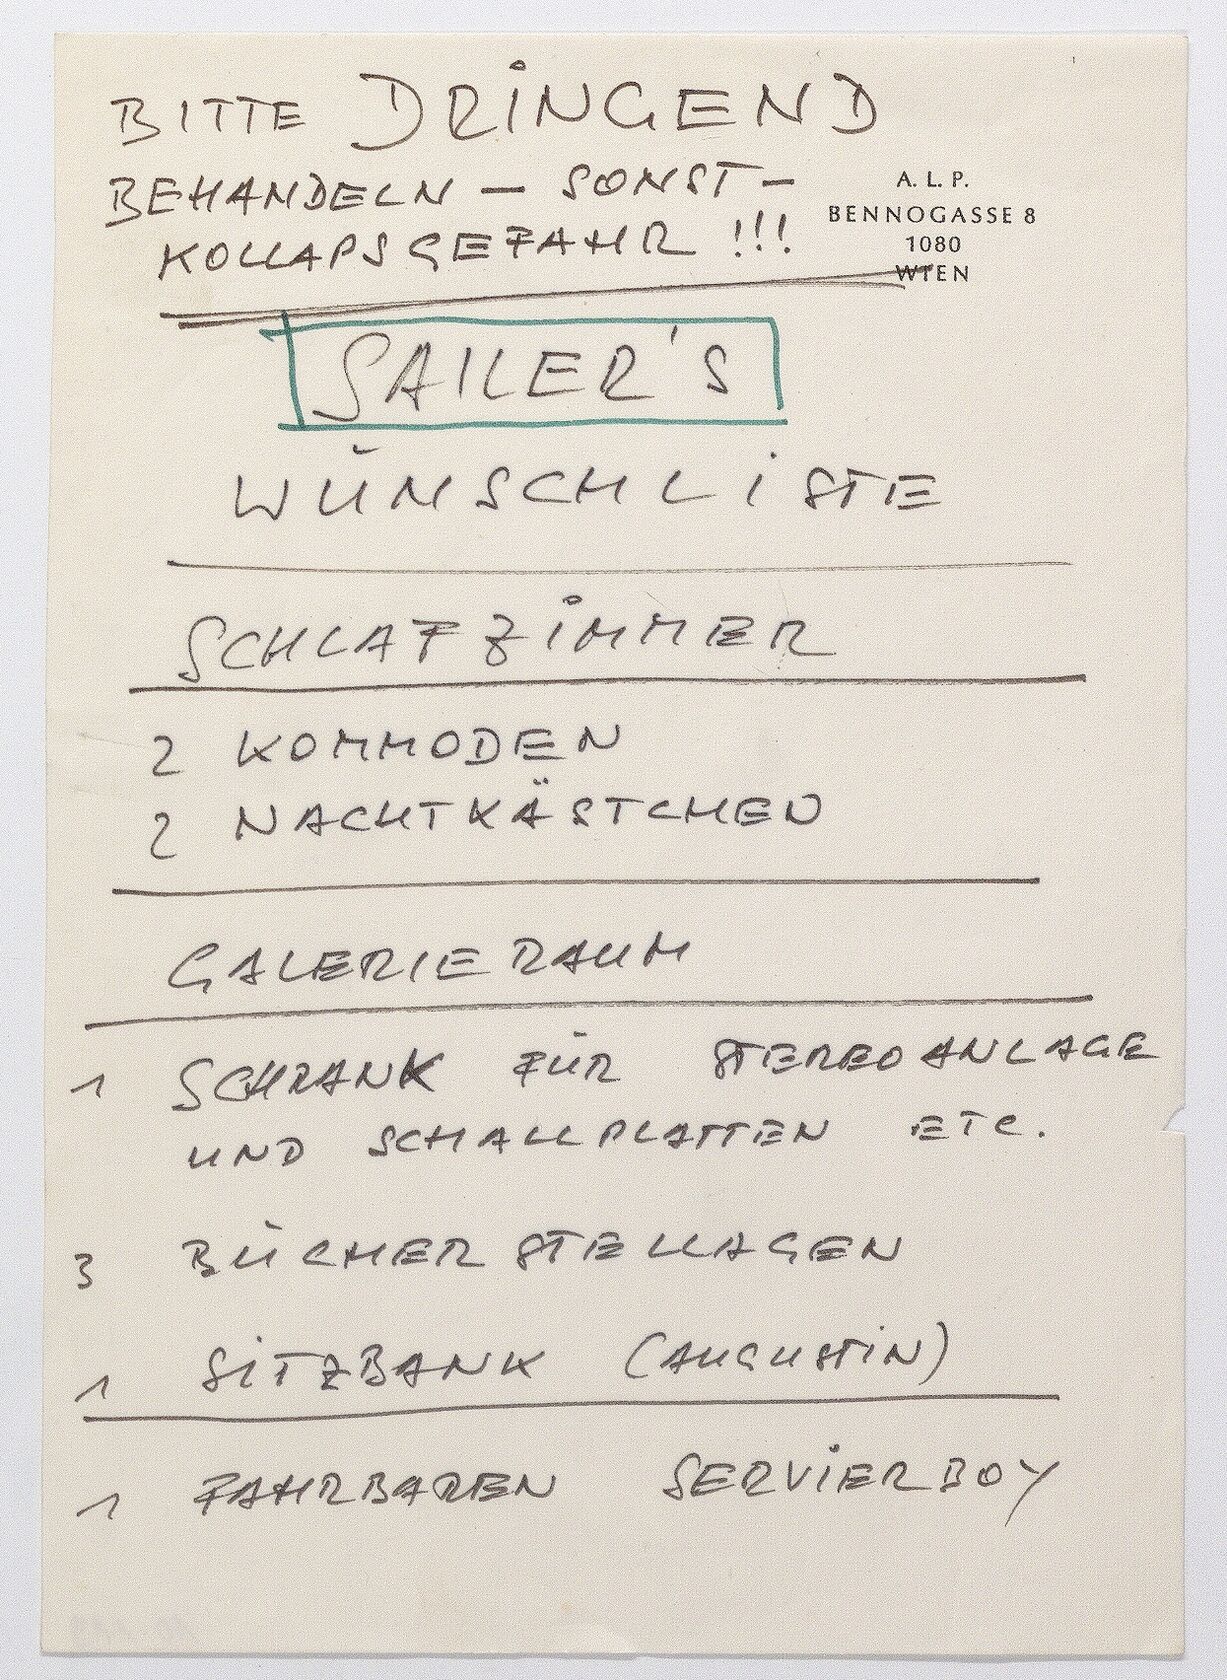 BITTE DRINGEND
BEHANDELN – SONST –
KOLLAPSGEFAHR !!!
A. L. P.
BENNOGASSE 8
1080
WIEN
SAILER'S
WUNSCHLISTE
SCHLAFZIMMER
2 KOMMODEN
2 NACHTKÄSTCHEN
GALERIERAUM
1 SCHRANK FÜR STEREOANLAGE
UND SCHALLPLATTEN ETC.
3 BÜCHERSTELLAGEN
1 SITZBANK (AUGUSTIN)
1 FAHRBAREN SERVIERBOY